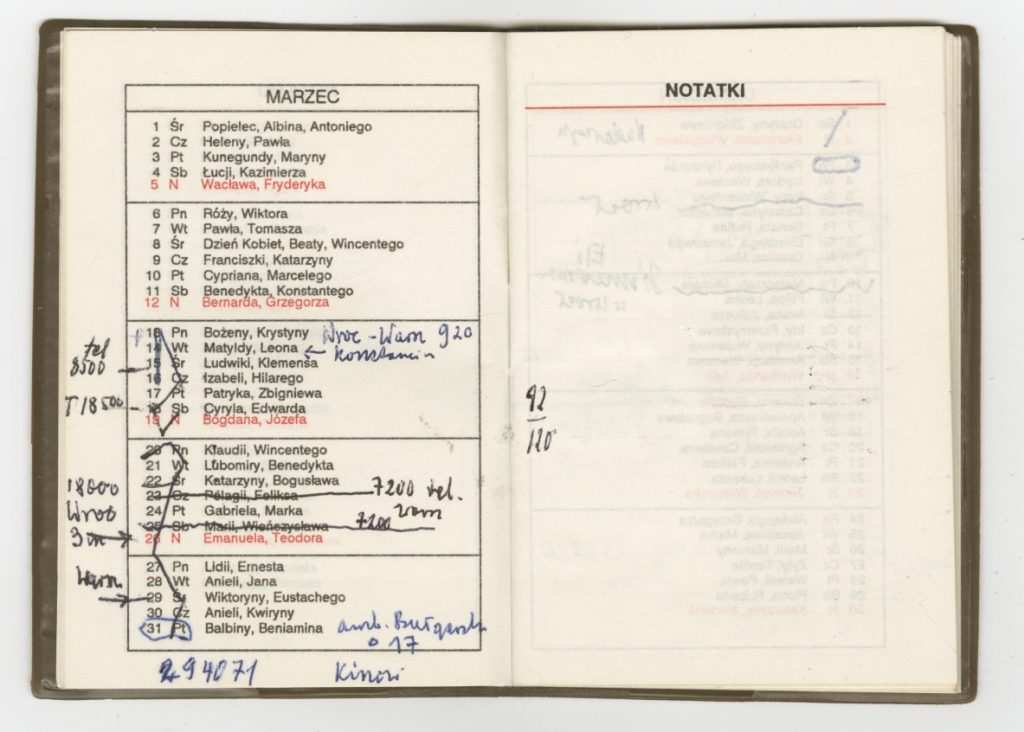 MARZEC
1 Śr Popielec, Albina, Antoniego
2 Cz Heleny, Pawła
3 Pt Kunegundy, Maryny
4 Sb Łucji, Kazimierza
5 N Wacława, Fryderyka
6 Pn Róży, Wiktora
7 Wt Pawła, Tomasza
8 Śr Dzień Kobiet, Beaty, Wincentego
9 Cz Franciszki, Katarzyny
10 Pt Cypriana, Marcelego
11 Sb Benedykta, Konstantego
12 N Bernarda, Grzegorza
13 Pn Bożeny, Krystyny Wroc - Warn 920
14 Wt Matyldy, Leona ← Konstancin
tel
8500
15 Śr Ludwiki, Klemensa
16 Cz Izabeli, Hilarego
17 Pt Patryka, Zbigniewa
T 18500
18 Sb Cyryla, Edwarda
19 N Bogdana, Józefa
20 Pn Klaudii, Wincentego
21 Wt Lubomiry, Benedykta
22 Śr Katarzyny, Bogusława
18000
23 Cz Pelagii, Feliksa 7200 tel.
Wroc
24 Pt Gabriela, Marka
25 Sb Marii, Wieńczysława 7200
26 N Emanuela, Teodora
27 Pn Lidii, Ernesta
28 Wt Anieli, Jana
29 Śr Wiktoryny, Eustachego
30 Cz Anieli, Kwiryny
31 Pt Balbiny, Beniamina amb.
o 17
294071
NOTATKI
92
120